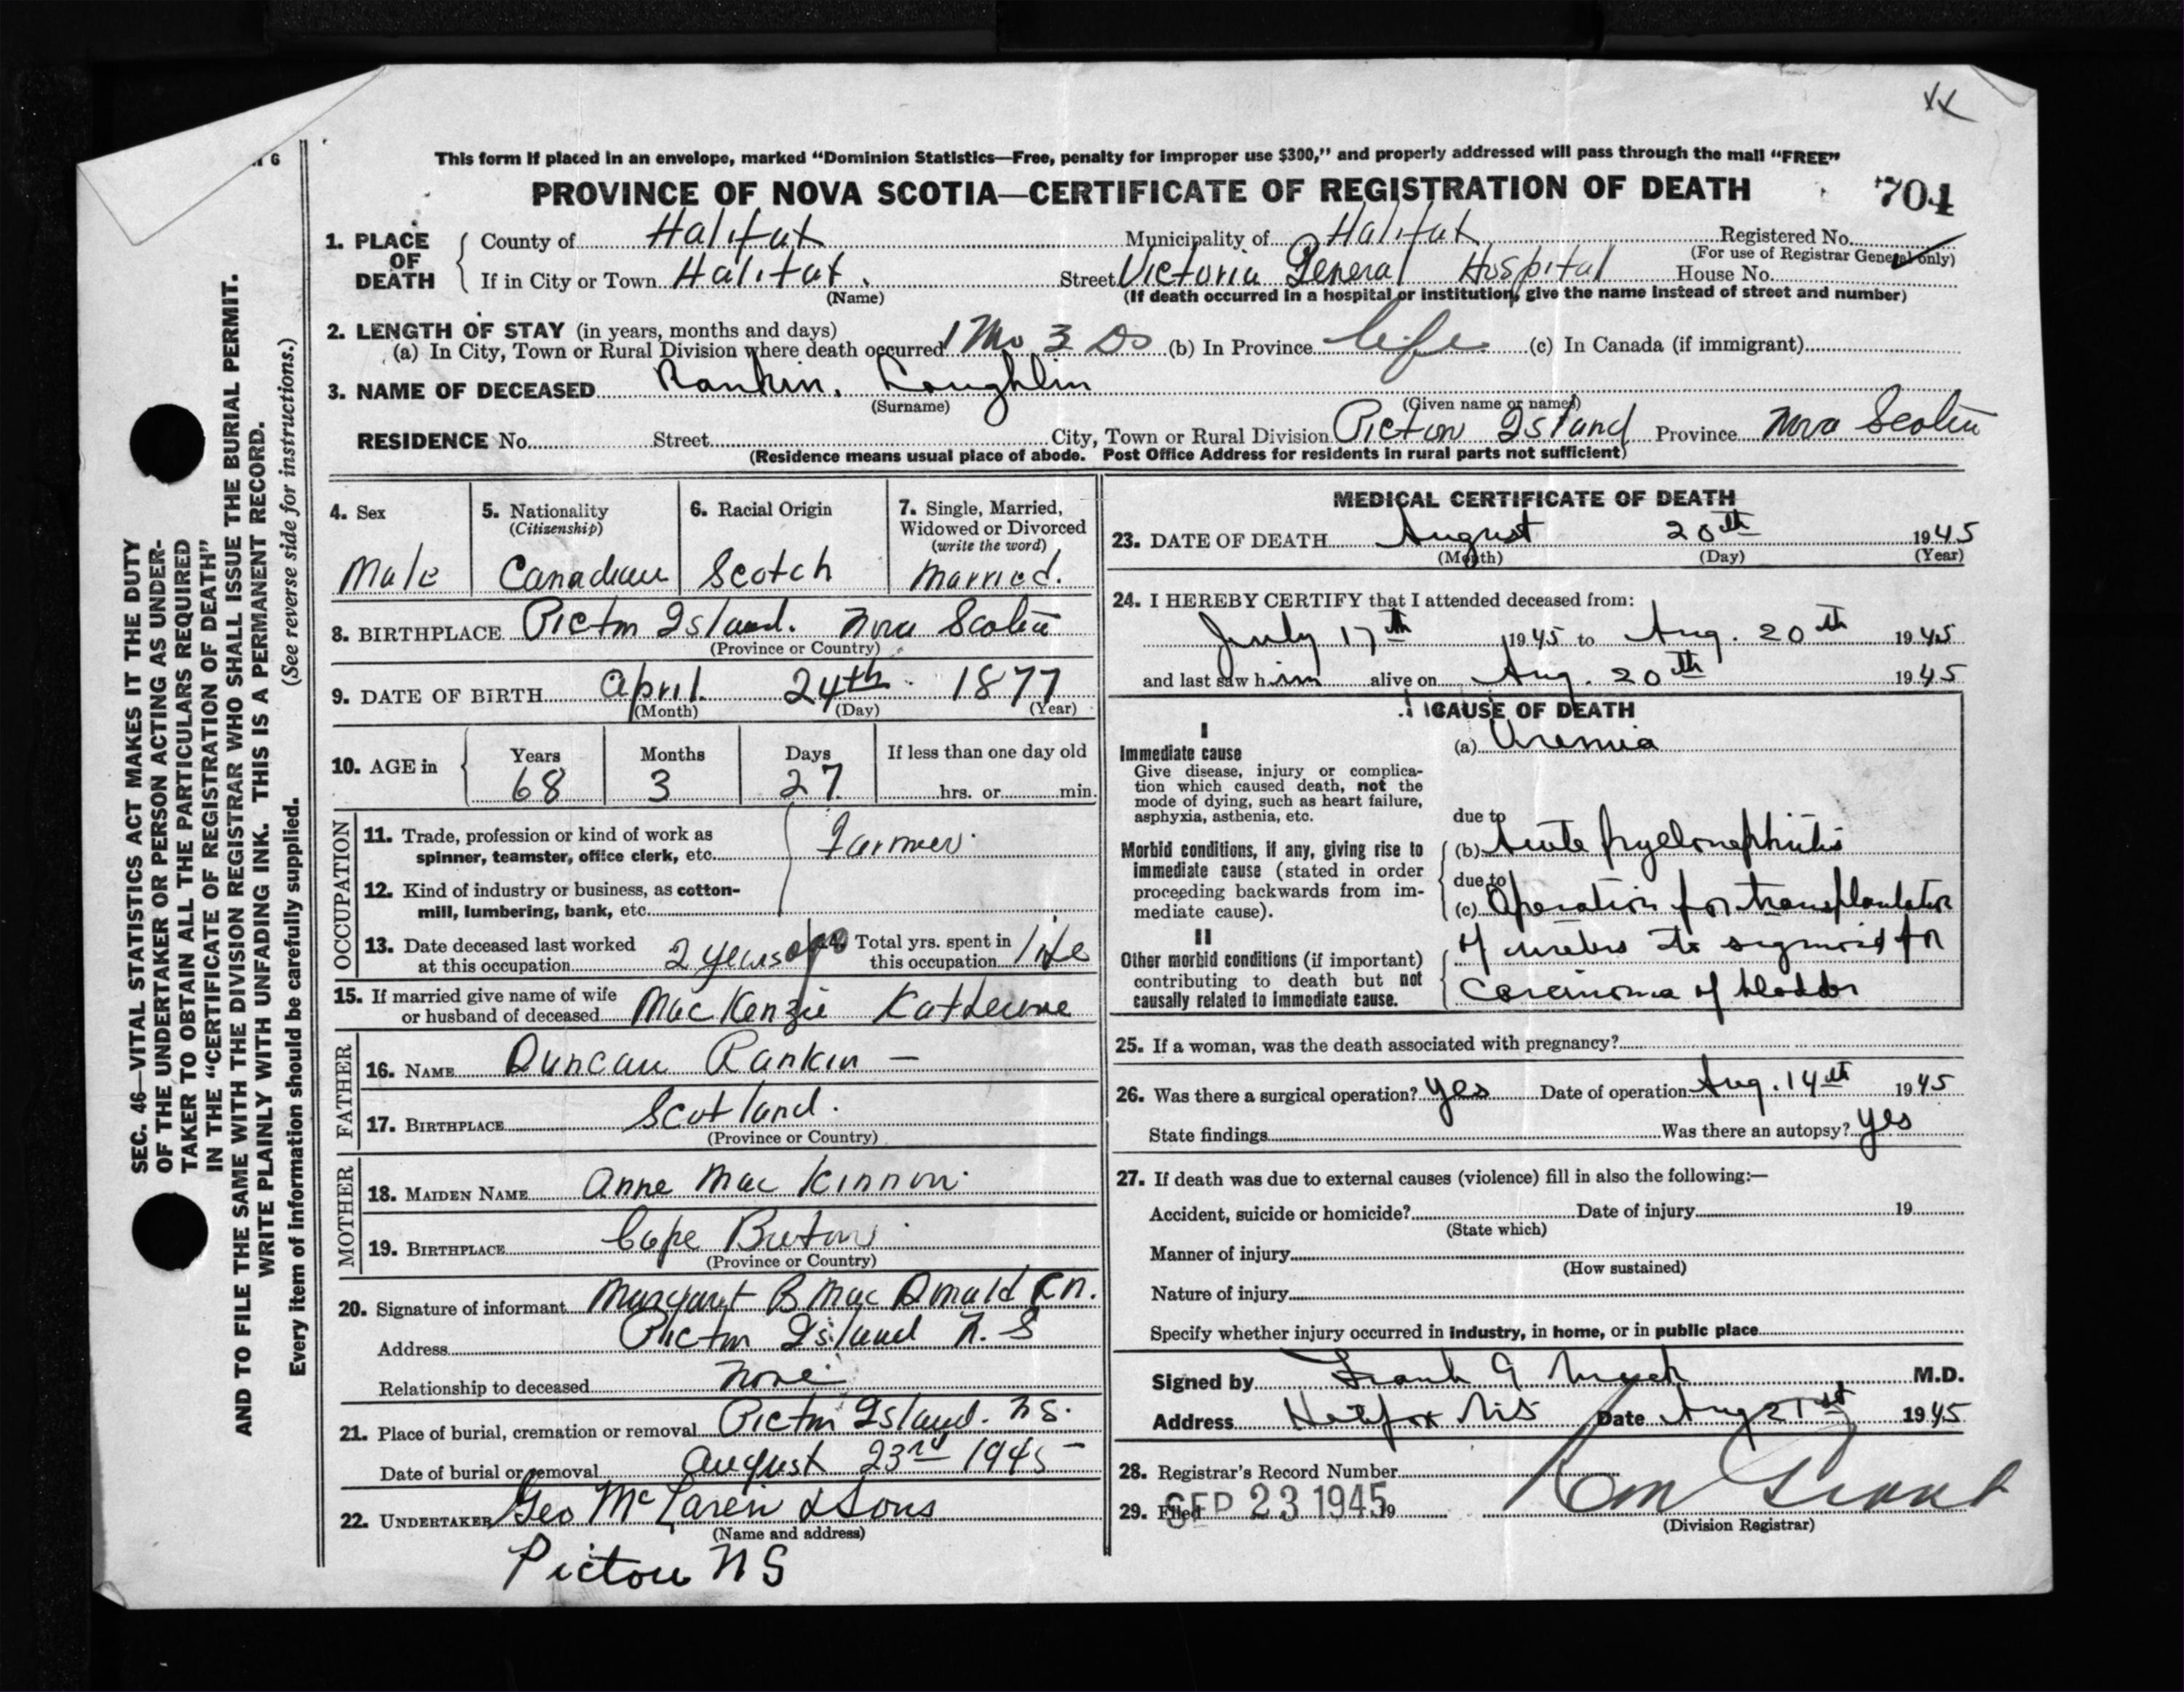 This form if placed in an envelope, marked “Dominion Statistics—Free, penalty for improper use $300,” and properly addressed will pass through the mail “FREE”
PROVINCE OF NOVA SCOTIA—CERTIFICATE OF REGISTRATION OF DEATH
704
1. PLACE OF DEATH
County of Halifax Municipality of Halifax Registered No.
(For use of Registrar General only)
If in City or Town Halifax. Street Victoria General Hospital House No.
(Name) (If death occurred in a hospital or institution, give the name instead of street and number)
2. LENGTH OF STAY (in years, months and days)
(a) In City, Town or Rural Division where death occurred 1 Mo 3 Ds (b) In Province life (c) In Canada (if immigrant)
3. NAME OF DECEASED Rankin, Loughlin
(Surname) (Given name or names)
RESIDENCE No. Street City, Town or Rural Division Pictou Island Province Nova Scotia
(Residence means usual place of abode. Post Office Address for residents in rural parts not sufficient)
4. Sex
Male
5. Nationality
(Citizenship)
Canadian
6. Racial Origin
Scotch
7. Single, Married,
Widowed or Divorced
(write the word)
Married.
8. BIRTHPLACE Pictou Island. Nova Scotia
(Province or Country)
9. DATE OF BIRTH April 24th 1877
(Month) (Day) (Year)
10. AGE in
Years Months Days If less than one day old
68 3 27 hrs. or min.
OCCUPATION
11. Trade, profession or kind of work as
spinner, teamster, office clerk, etc. Farmer
12. Kind of industry or business, as cotton-
mill, lumbering, bank, etc.
13. Date deceased last worked
at this occupation 2 years ago
Total yrs. spent in
this occupation life
15. If married give name of wife
or husband of deceased MacKenzie Katherine
FATHER
16. NAME Duncan Rankin —
17. BIRTHPLACE Scotland.
(Province or Country)
MOTHER
18. MAIDEN NAME Anne MacKinnon
19. BIRTHPLACE Cape Breton
(Province or Country)
20. Signature of informant Margaret B MacDonald RN.
Address Pictou Island N.S
Relationship to deceased None
21. Place of burial, cremation or removal Pictou Island. NS.
Date of burial or removal August 23rd 1945 —
22. UNDERTAKER Geo McLaren & Sons
(Name and address)
Pictou NS
MEDICAL CERTIFICATE OF DEATH
23. DATE OF DEATH August 20th 1945
(Month) (Day) (Year)
24. I HEREBY CERTIFY that I attended deceased from:
July 17th 1945 to Aug. 20th 1945
and last saw him alive on Aug. 20th 1945
CAUSE OF DEATH
I
Immediate cause
Give disease, injury or complica-
tion which caused death, not the
mode of dying, such as heart failure,
asphyxia, asthenia, etc.
(a) Uremia
due to
Morbid conditions, if any, giving rise to
immediate cause (stated in order
proceeding backwards from im-
mediate cause).
(b) Acute pyelonephritis
due to
(c) Operation for transplantation
II
Other morbid conditions (if important)
contributing to death but not
causally related to immediate cause.
of ureters to sigmoid for
Carcinoma of bladder
25. If a woman, was the death associated with pregnancy?
26. Was there a surgical operation? yes Date of operation Aug. 14th 1945
State findings Was there an autopsy? yes
27. If death was due to external causes (violence) fill in also the following:—
Accident, suicide or homicide? Date of injury 19
(State which)
Manner of injury
(How sustained)
Nature of injury
Specify whether injury occurred in industry, in home, or in public place
Signed by Frank G Mack M.D.
Address Halifax N.S Date Aug 21st 1945
28. Registrar's Record Number
29. Filed SEP 23 1945 19
(Division Registrar)
SEC. 46—VITAL STATISTICS ACT MAKES IT THE DUTY
OF THE UNDERTAKER OR PERSON ACTING AS UNDER-
TAKER TO OBTAIN ALL THE PARTICULARS REQUIRED
IN THE “CERTIFICATE OF REGISTRATION OF DEATH”
AND TO FILE THE SAME WITH THE DIVISION REGISTRAR WHO SHALL ISSUE THE BURIAL PERMIT.
WRITE PLAINLY WITH UNFADING INK. THIS IS A PERMANENT RECORD.
Every item of information should be carefully supplied. (See reverse side for instructions.)